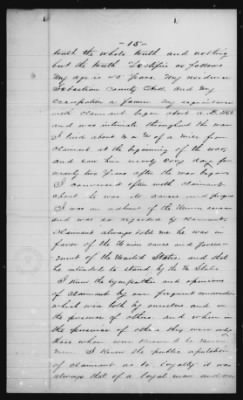 -15-
truth the whole truth and nothing
but the truth Testifies as follows
My age is 45 years. My residence
Sebastian County Ark and my
occupation a farmer My acquaintance
with claimant began about
and was intimate throughout the war
I lived about of a mile from
claimant at the beginning of the war
and saw him nearly every day for
nearly two years after the war began
I conversed often with claimant
about the war its causes and progress
I was an adherent of the Union cause
and was so regarded by claimant.
Claimant always told me he was in
favor of the Union cause and govern-
ment of the United States and that
he intended to stand by the U. States
I knew the sympathies and opinions
of claimant by our frequent conversation
which were both by ourselves and in
the presence of others and when in
the presence of others they were only
those whom were known to be Union
men. I knew the public reputation
of claimant as to loyalty it was
always that of a loyal man and